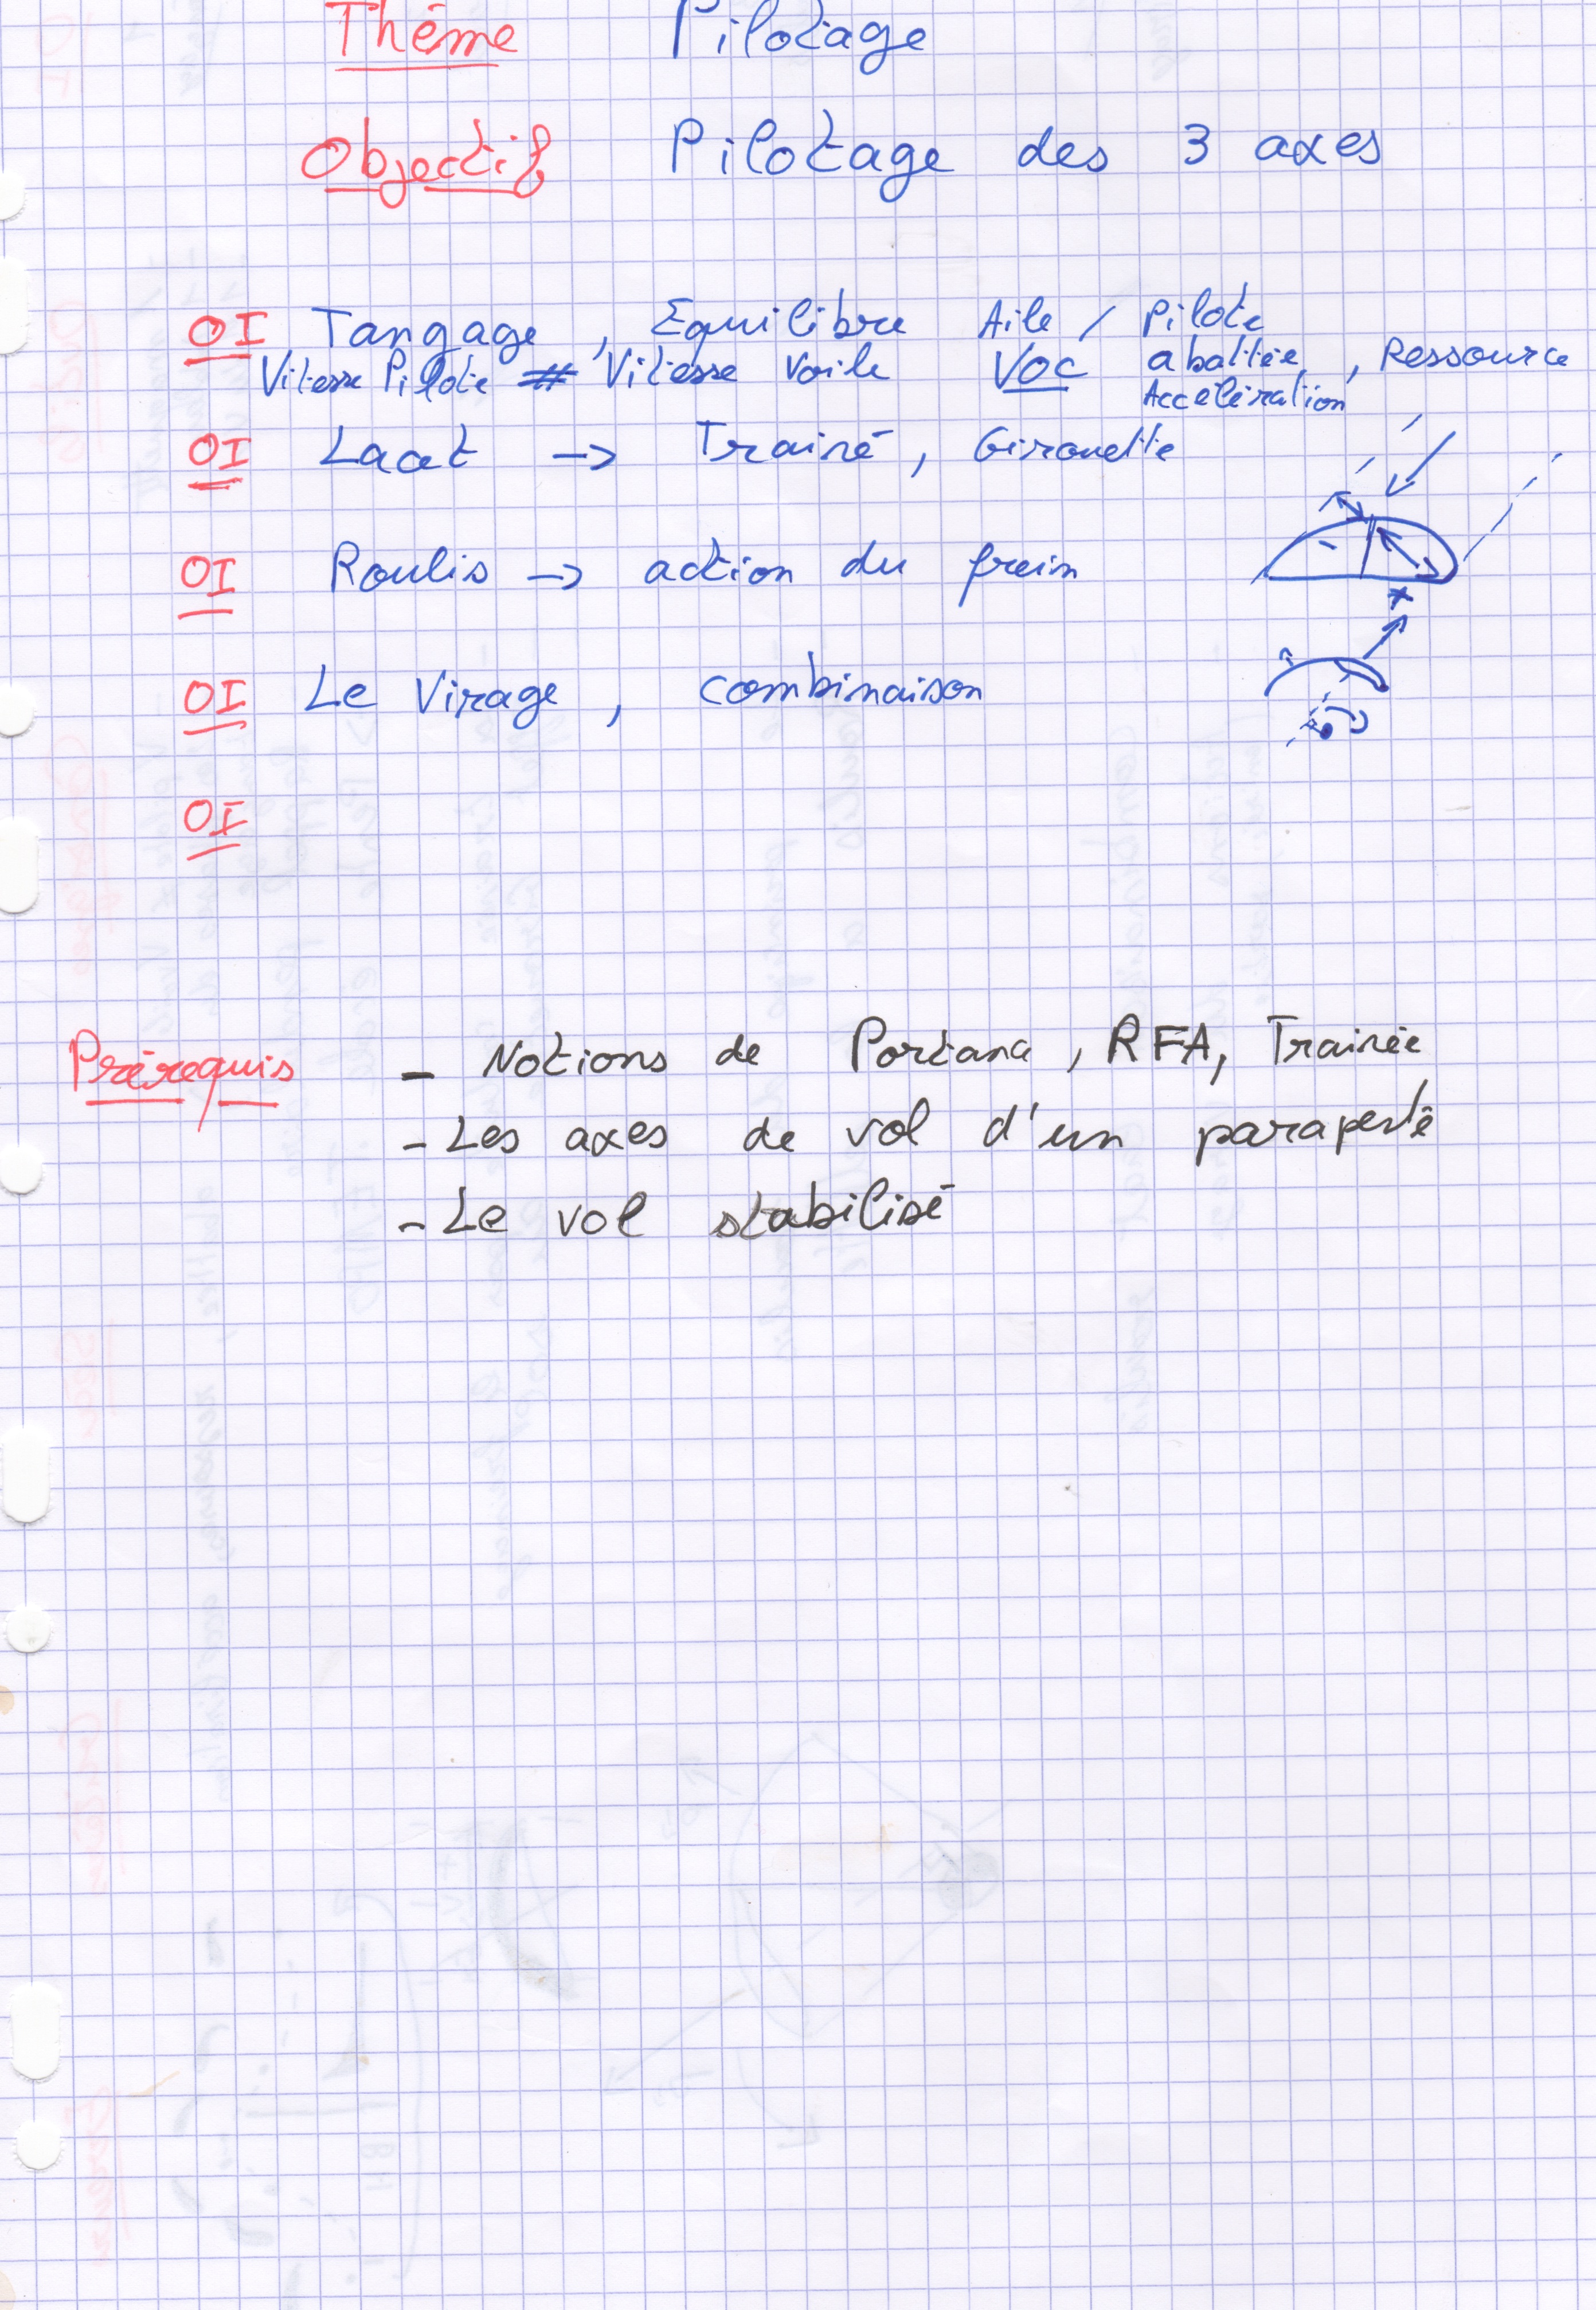 Thème Pilotage
Objectif Pilotage des 3 axes
OI Tangage, Equilibre Aile / Pilote
Vitesse Pilote # Vitesse Voile VOC abattée, Ressource
Accélération
OI Lacet -> Trainé, Girouette
OI Roulis -> action du frein
OI Le Virage, combinaison
OI
Prérequis - Notions de Portance, RFA, Trainée
- Les axes de vol d'un parapente
- Le vol stabilisé